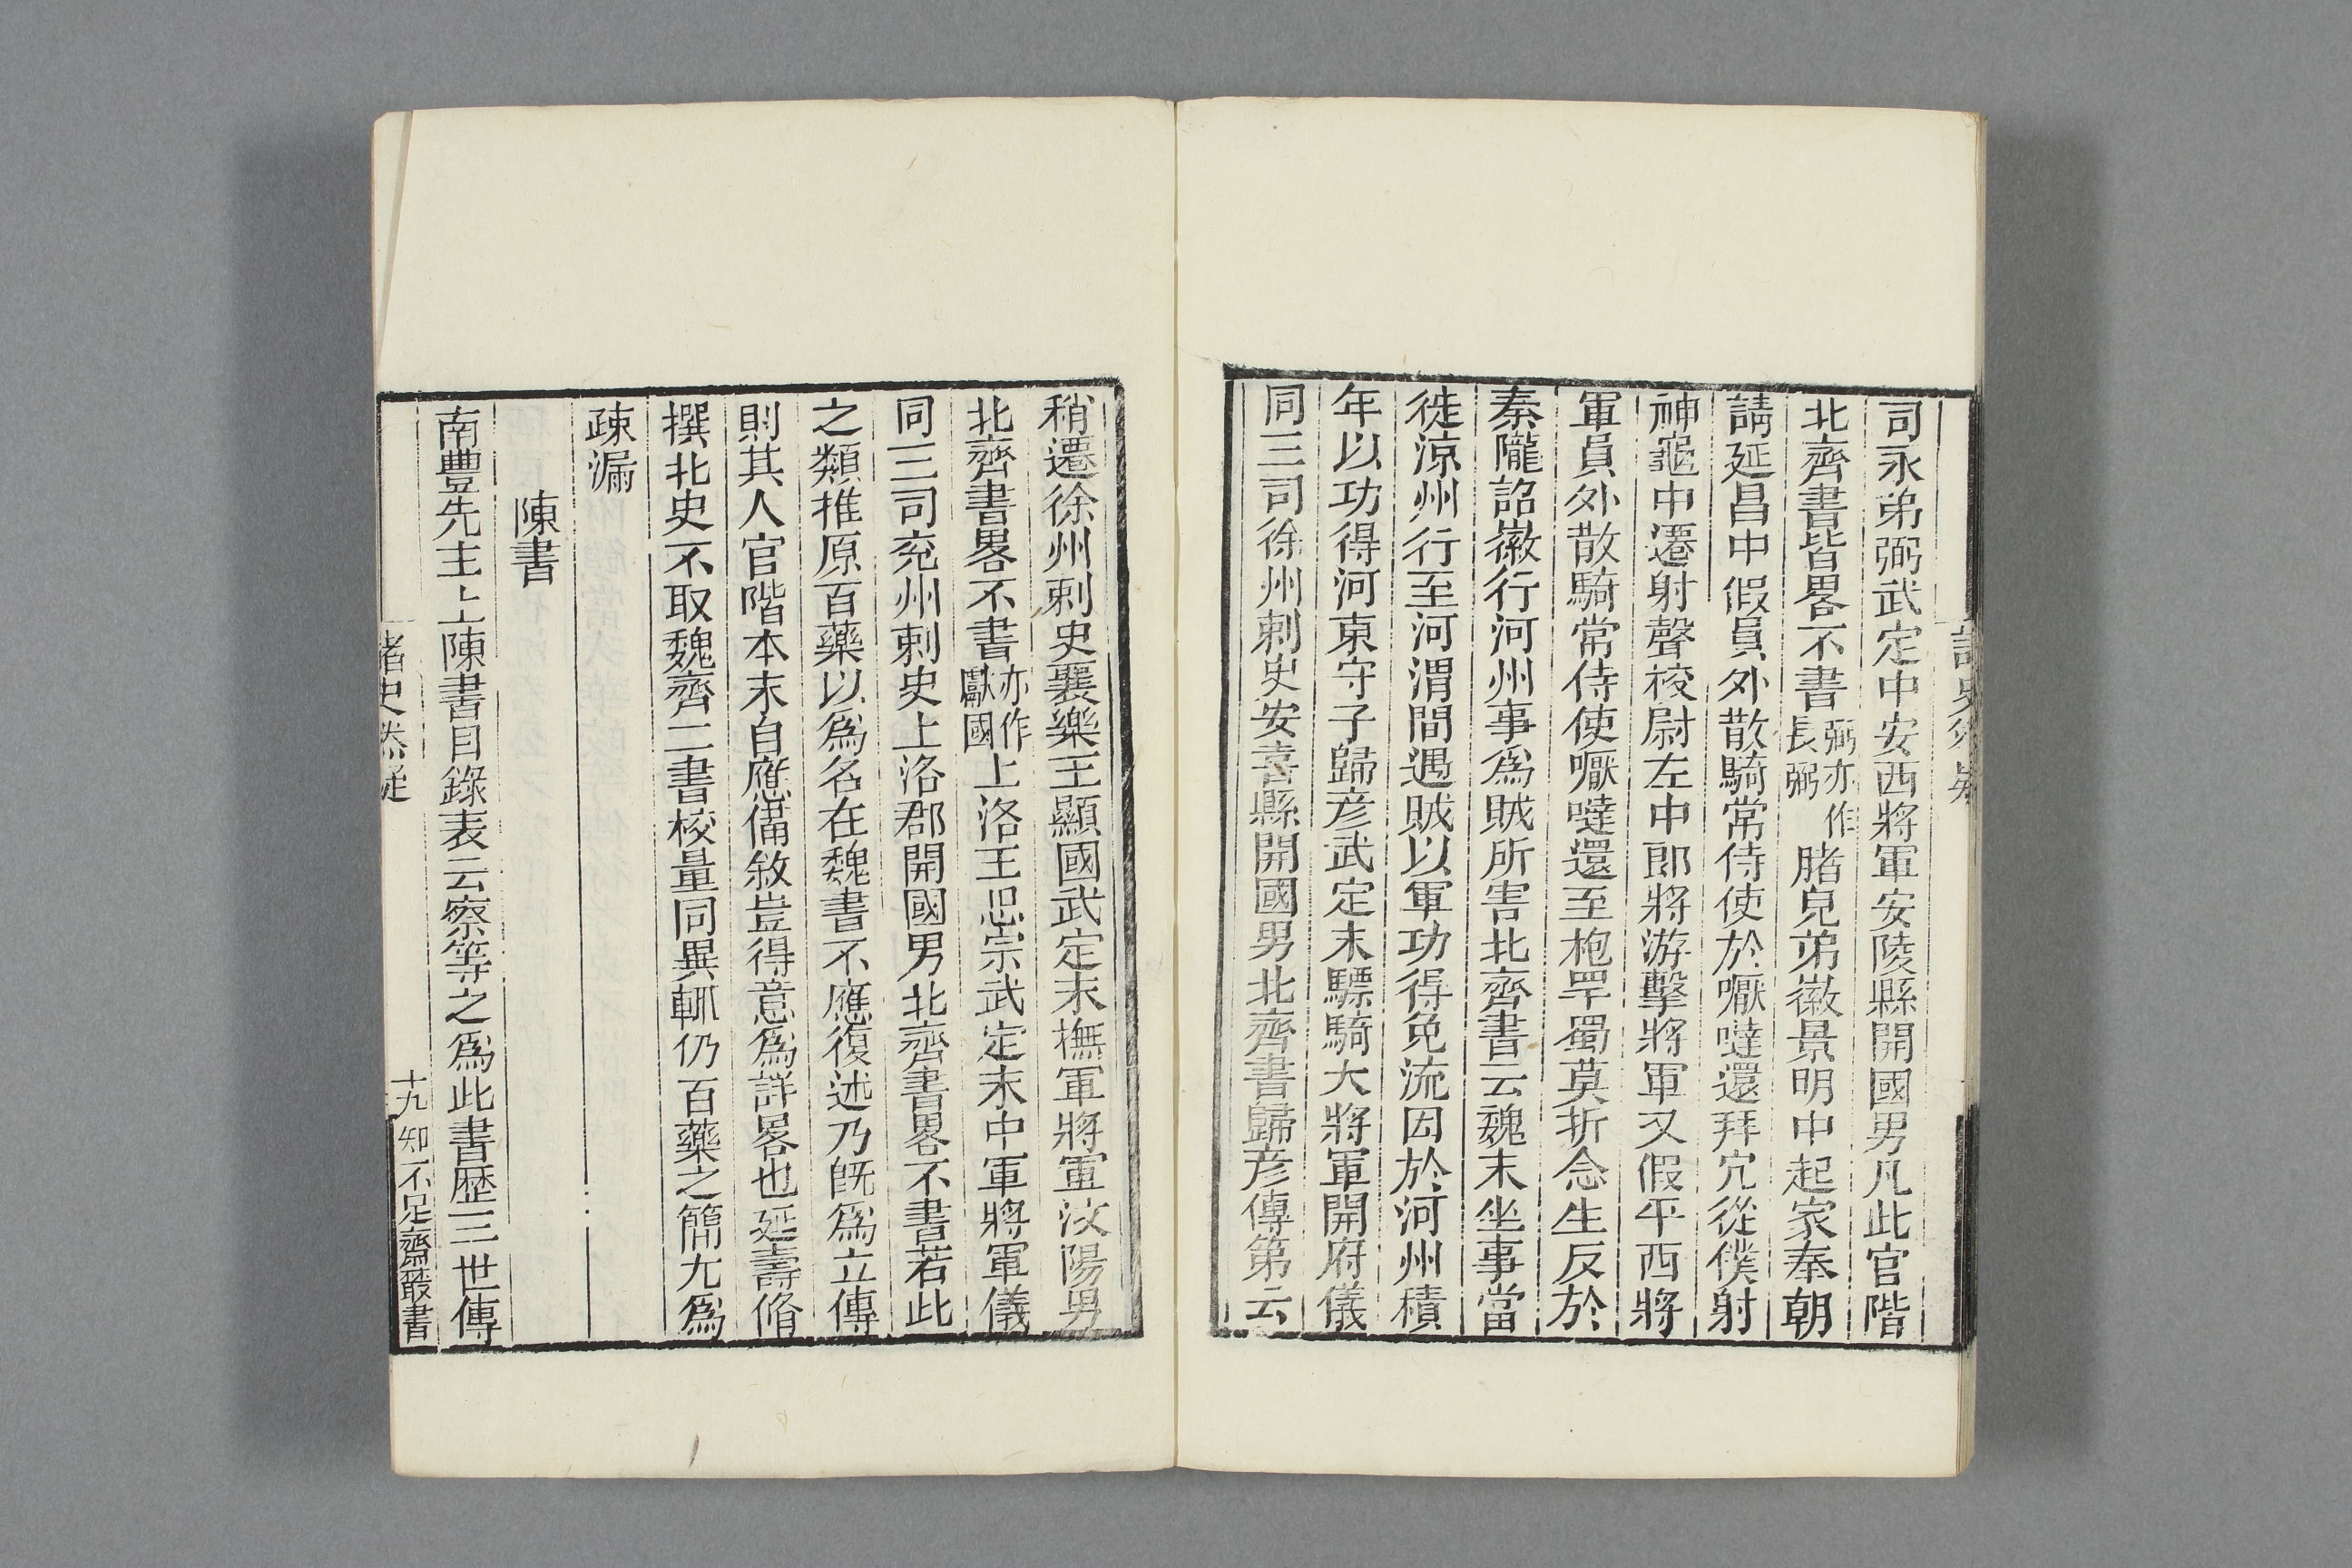 司永弟弼武定中安西將軍安陵縣開國男凡此官階
北齊書皆畧不書弼亦作長弼腊皃弟徽景明中起家奉朝
請延昌中假員外散騎常侍使於嚈噠還拜宂從僕射
神龜中遷射聲校尉左中郎將游擊將軍又假平西將
軍員外散騎常侍使嚈噠還至枹罕蜀莫折念生反於
秦隴詔徽行河州事爲賊所害北齊書云魏末坐事當
徙涼州行至河渭間遇賊以軍功得免流因於河州積
年以功得河東守子歸彦武定末驃騎大將軍開府儀
同三司徐州刺史安喜縣開國男北齊書歸彦傳第云
稍遷徐州刺史襄樂王顯國武定末撫軍將軍汶陽男
北齊書畧不書亦作獻國上洛王思宗武定末中軍將軍儀
同三司兖州刺史上洛郡開國男北齊書畧不書若此
之類推原百藥以爲名在魏書不應復述乃旣爲立傳
則其人官階本末自應備敘豈得意爲詳畧也延壽脩
撰北史不取魏齊二書校量同異輒仍百藥之簡尤爲
疎漏
陳書
南豐先生上陳書目錄表云察等之爲此書歴三世傳
諸史然疑
十九
知不足齋叢書